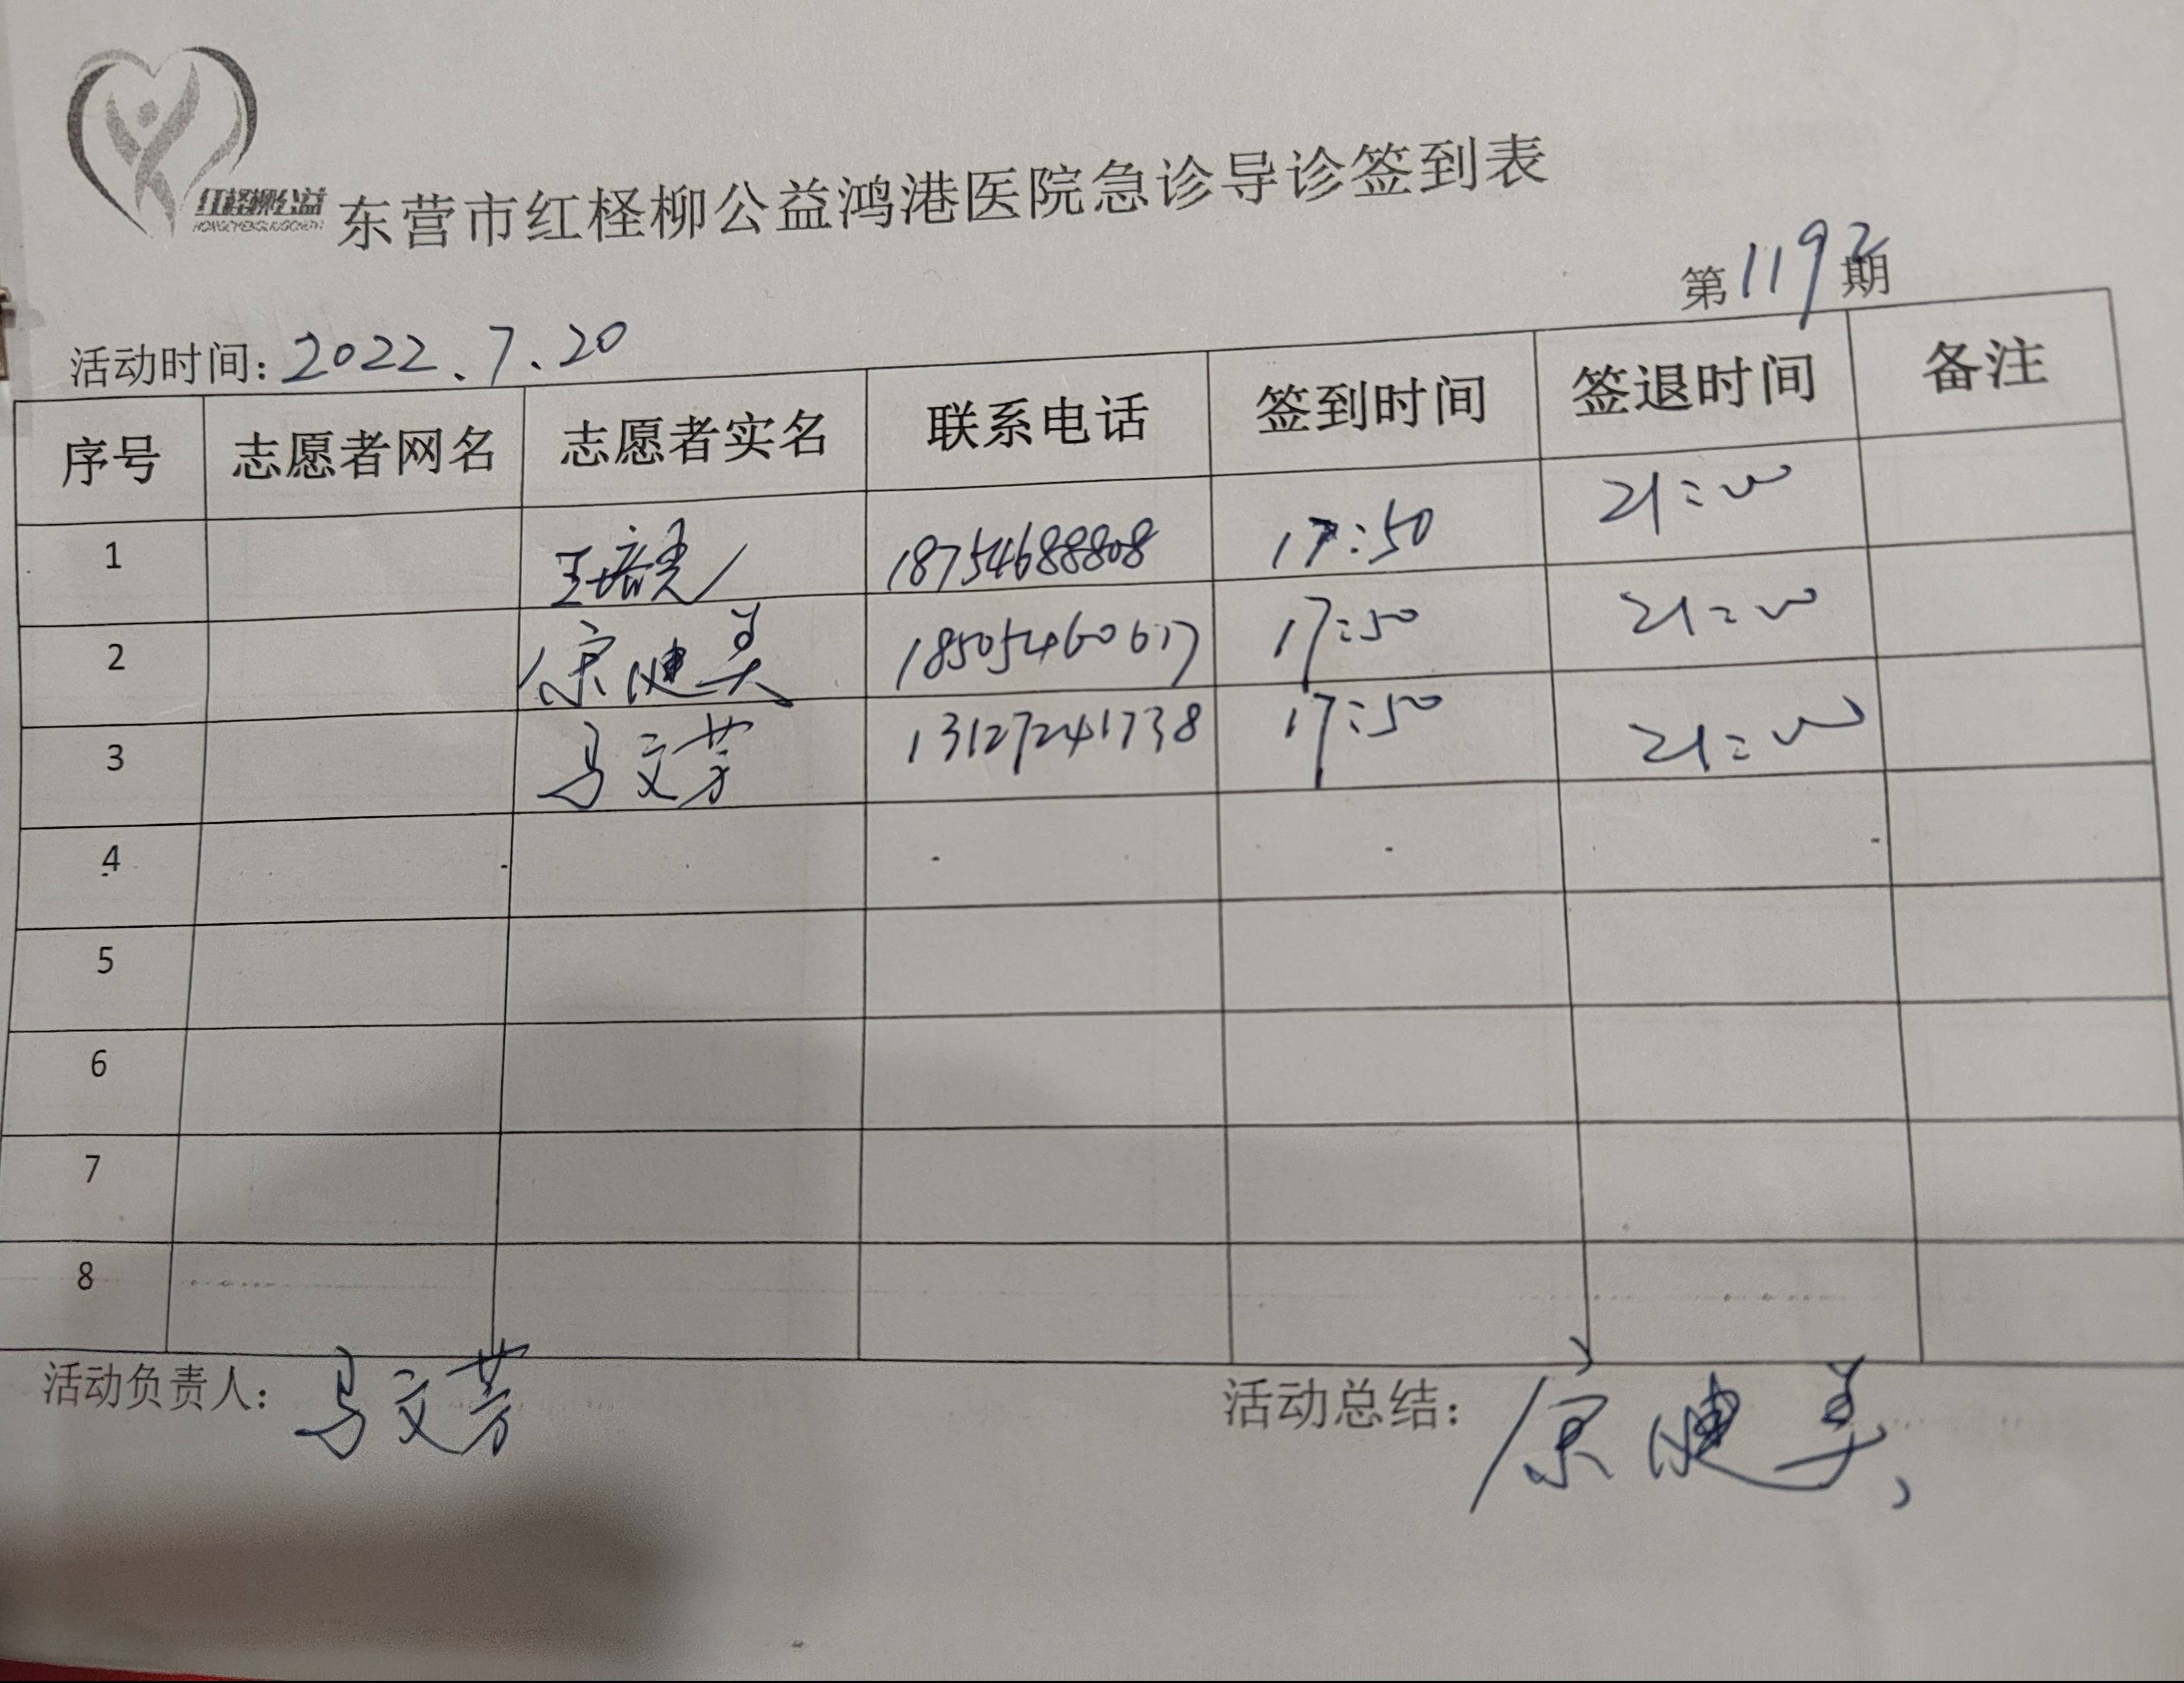 红柽柳公益
东营市红柽柳公益鸿港医院急诊导诊签到表
第1192期
活动时间：2022.7.20
序号 志愿者网名 志愿者实名 联系电话 签到时间 签退时间 备注
1 王培 18754688808 17:50 21:00
2 健美 18505460617 17:50 21:00
3 马文芳 13127241738 17:50 21:00
4
5
6
7
8
活动负责人：马文芳 活动总结：健美